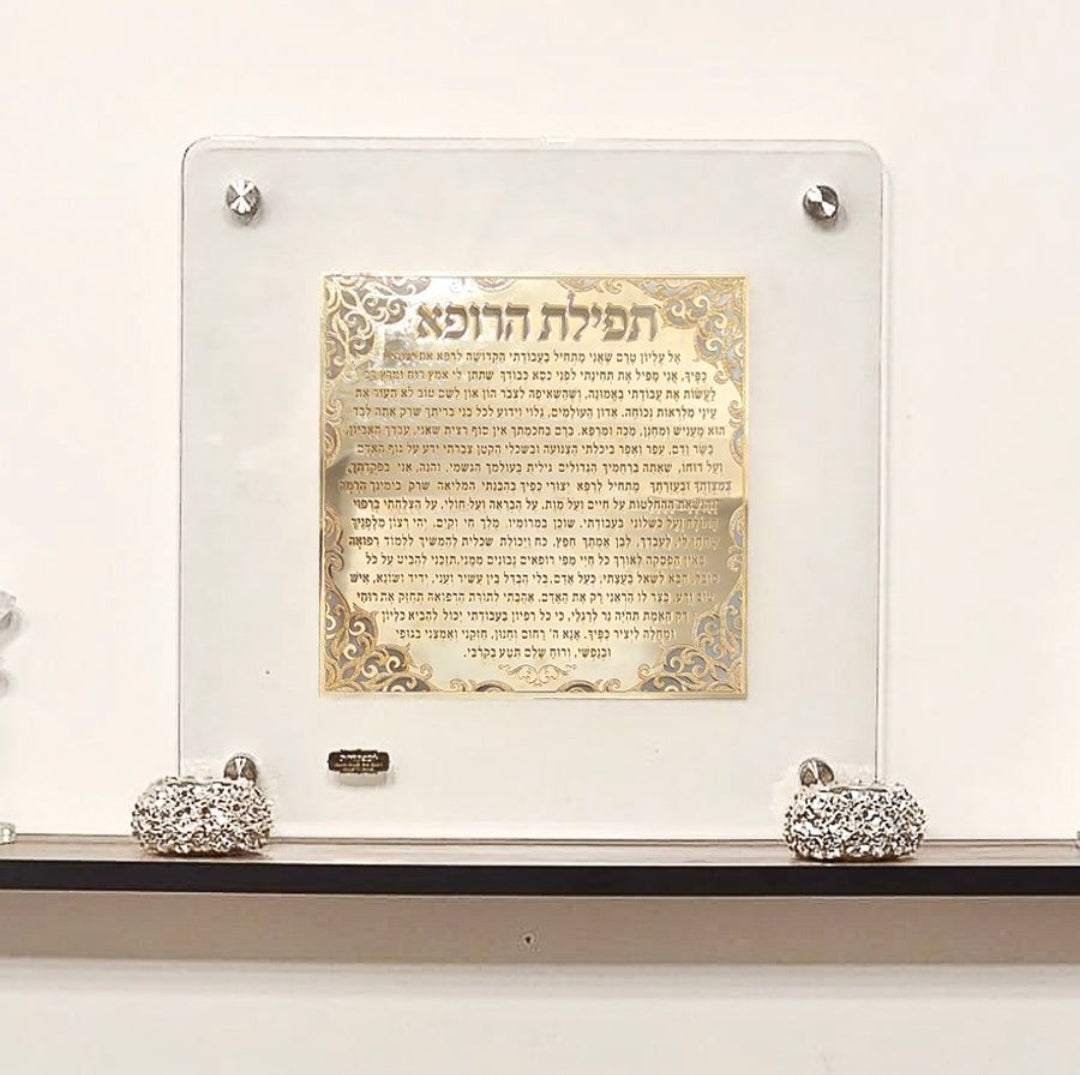 תפילת הרופא
אֵל עֶלְיוֹן טֶרֶם שֶׁאֲנִי מַתְחִיל בַּעֲבוֹדָתִי הַקְּדוֹשָׁה לְרַפֵּא אֶת
כַּפֶּיךָ, אֲנִי מַפִּיל אֶת תְּחִינָתִי לִפְנֵי כִּסֵּא כְבוֹדְךָ שֶׁתִּתֵּן לִי אֹמֶץ רוּחַ וּמֶרֶץ רַב
לַעֲשׂוֹת אֶת עֲבוֹדָתִי בֶּאֱמוּנָה, וְשֶׁהַשְּׁאִיפָה לִצְבֹּר הוֹן אוֹ לְשֵׁם טוֹב לֹא תְעַוֵּר אֶת
עֵינַי מִלִּרְאוֹת נְכוֹחָה. אֲדוֹן הָעוֹלָמִים, גָּלוּי וְיָדוּעַ לְכָל בְּנֵי בְרִיתְךָ שֶׁרַק אַתָּה לְבַד
הוּא מַעֲנִישׁ וּמְחַנֵּן, מַכֶּה וּמְרַפֵּא. בְּרַם בְּחָכְמָתְךָ אֵין סוֹף רָצִיתָ שֶׁאֲנִי, עַבְדְּךָ הָאֶבְיוֹן,
בָּשָׂר וָדָם, עָפָר וָאֵפֶר בִּיכָלְתִּי הַצְּנוּעָה וּבְשִׂכְלִי הַקָּטָן צָבַרְתִּי יֶדַע עַל גּוּף הָאָדָם
וְעַל רוּחוֹ, שֶׁאַתָּה בְּרַחֲמֶיךָ הַגְּדוֹלִים גִּילִיתָ בְּעוֹלָמְךָ הַגַּשְׁמִי. וְהִנֵּה, אֲנִי בִּפְקֻדָּתְךָ,
בְּמִצְוָתְךָ וּבְעֶזְרָתְךָ מַתְחִיל לְרַפֵּא יְצוּרֵי כַפֶּיךָ בַּהֲבָנָתִי הַמְּלֵיאָה שֶׁרַק בִּימִינְךָ הָרָמָה
הַהַחְלָטוֹת עַל חַיִּים וְעַל מָוֶת, עַל הַבְרָאָה וְעַל חוֹלִי, עַל הַצְלָחָתִי בְּרִפּוּי
וְעַל כִּשְׁלוֹנִי בַּעֲבוֹדָתִי. שׁוֹכֵן בִּמְרוֹמָיו, מֶלֶךְ חַי וְקַיָּם, יְהִי רָצוֹן מִלְּפָנֶיךָ
שֶׁתִּתֵּן לִי, לְעַבְדְּךָ, לְבֶן אֲמָתְךָ חֵפֶץ, כֹּחַ וִיכוֹלֶת שִׂכְלִית לְהַמְשִׁיךְ לִלְמוֹד רְפוּאָה
בְּאֵין הַפְסָקָה לְאוֹרֶךְ כָּל חַיַּי מִפִּי רוֹפְאִים נְבוֹנִים מִמֶּנִּי. תְּזַכֵּנִי לְהַבִּיט עַל כָּל
סוֹבֵל, הַבָּא לִשְׁאֹל בַּעֲצָתִי, כְּעַל אָדָם, בְּלִי הֶבְדֵּל בֵּין עָשִׁיר וְעָנִי, יָדִיד וְשׂוֹנֵא, אִישׁ
טוֹב וָרָע, בַּצַּר לוֹ הַרְאֵנִי רַק אֶת הָאָדָם. אַהֲבָתִי לְתוֹרַת הָרְפוּאָה תְּחַזֵּק אֶת רוּחִי
רַק הָאֱמֶת תִּהְיֶה נֵר לְרַגְלַי, כִּי כָּל רִפְיוֹן בַּעֲבוֹדָתִי יָכוֹל לְהָבִיא כִּלָּיוֹן
וּמַחֲלָה לִיצִיר כַּפֶּיךָ. אָנָּא ה' רַחוּם וְחַנּוּן, חַזְּקֵנִי וְאַמְּצֵנִי בְּגוּפִי
וּבְנַפְשִׁי, וְרוּחַ שָׁלֵם תִּטַּע בְּקִרְבִּי.